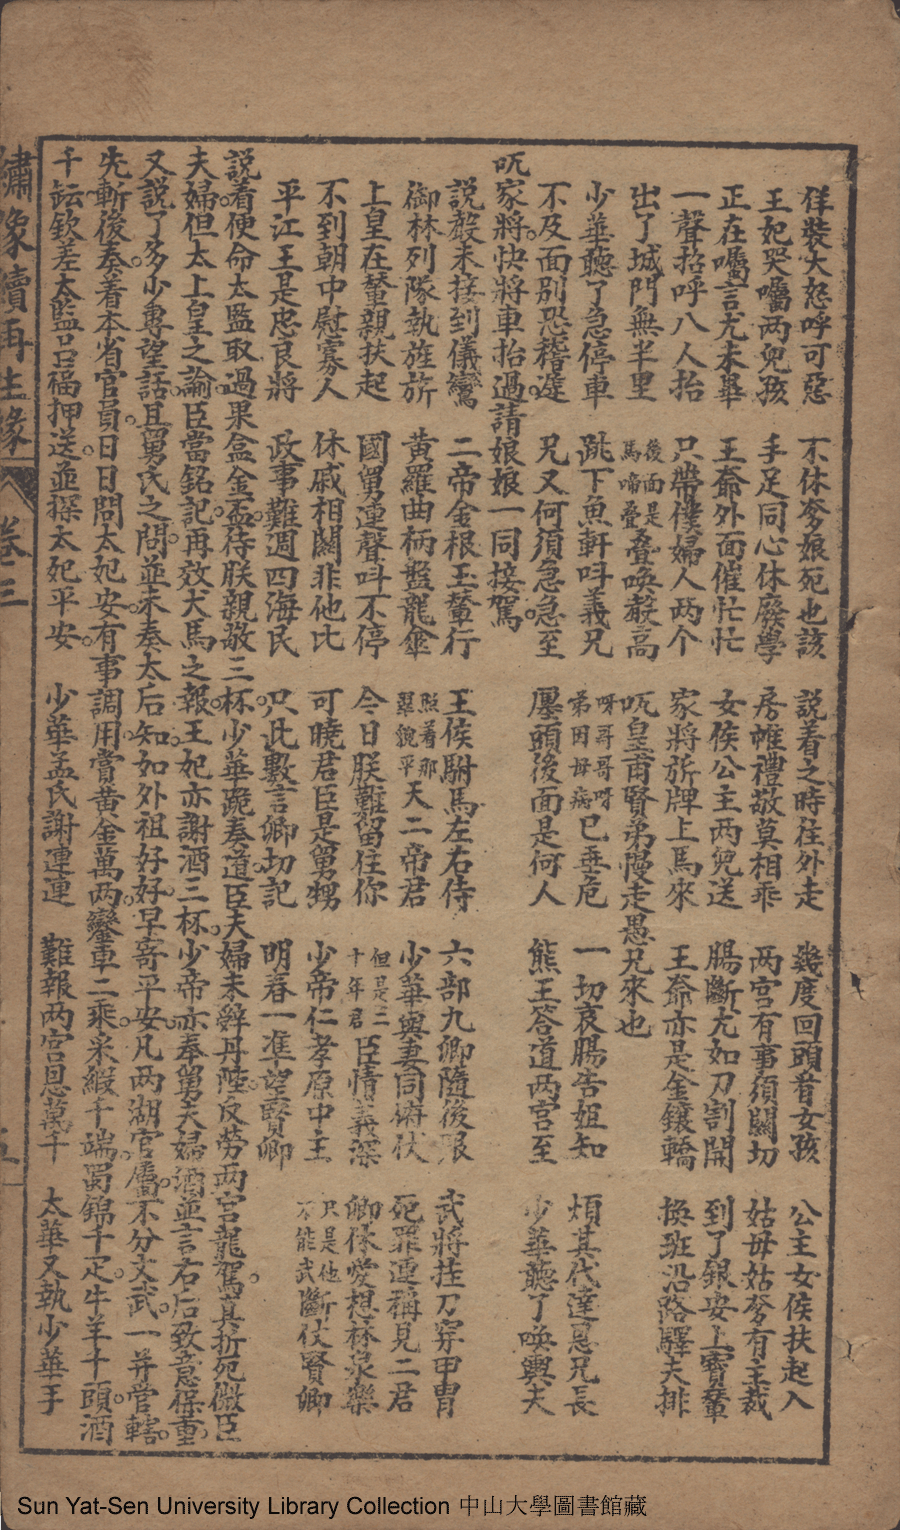 佯裝大怒呼可惡　不休爹娘死也該　說着之時往外走　幾度回頭看女孩　公主女侯扶起入
王妃哭囑两兒孩　手足同心休廢學　房帷禮敬莫相乖　两宫有事須關切　姑母姑爹有主裁
正在囑言尤未畢　王爺外面催忙忙　女侯公主两兒送　腸斷尤如刀割開　到了銀安上寶輦
一聲招呼八人抬　只帶僕婦人两个　家將旂牌上馬來　王爺亦是金鑲轎　換班沿路驛夫排
出了城門無半里　後面是馬啼叠叠喚聲高　呒皇甫賢弟慢走愚兄來也
少華聽了急停車　跳下魚軒呌義兄　呀哥哥呀弟因母病已垂危　一切哀腸告姐知　煩其代達恳兄長
不及面別恐稽遲　兄又何須急急至　壓頭後面是何人　熊王答道两宫至　少華聽了喚輿夫
呒家將快將車抬過請娘娘一同接駕
說聲未接到儀鸞　二帝金根玉輦行　王侯駙馬左右侍　六部九卿隨後跟　武將挂刀穿甲胄
御林列隊執旌旂　黄羅曲柄盤龍傘　照着那翠貌平天二帝君　少華與妻同俯伏　死罪連稱見二君
上皇在輦親扶起　國舅連聲呌不停　今日朕難留住你　但是二十年君臣情義深　卿休愛想林泉樂
不到朝中慰寡人　休戚相關非他比　可曉君臣是舅甥　少帝仁孝原中主　只是他不能武斷仗賢卿
平江王是忠良將　政事難週四海民　只此數言卿切記　明春一準望賢卿
說着便命太監取過果盒金盃待朕親敬三杯少華跪奏道臣夫婦未辤丹陛反劳两宫龍駕真折死微臣
夫婦但太上皇之諭臣當銘記再效犬馬之報王妃亦謝酒三杯少帝亦奉舅夫婦酒並言右后致意保重
又說了多少專望話且舅氏之問並未奏太后知如外祖好好早寄平安凡两湖官屬不分文武一并管轄
先斬後奏着本省官員日日問太妃安有事調用賞黄金萬两鑾車二乘采緞千端蜀錦千疋牛羊千頭酒
千缸欽差太監呂福押送並探太妃平安　少華孟氏謝連連　難報两宫恩萬千　太華又執少華手
繡像續再生緣　卷三
Sun Yat-Sen University Library Collection 中山大學圖書館藏